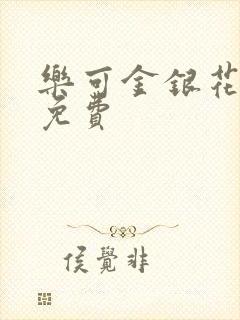 樂可金銀花
免費
侯覺非